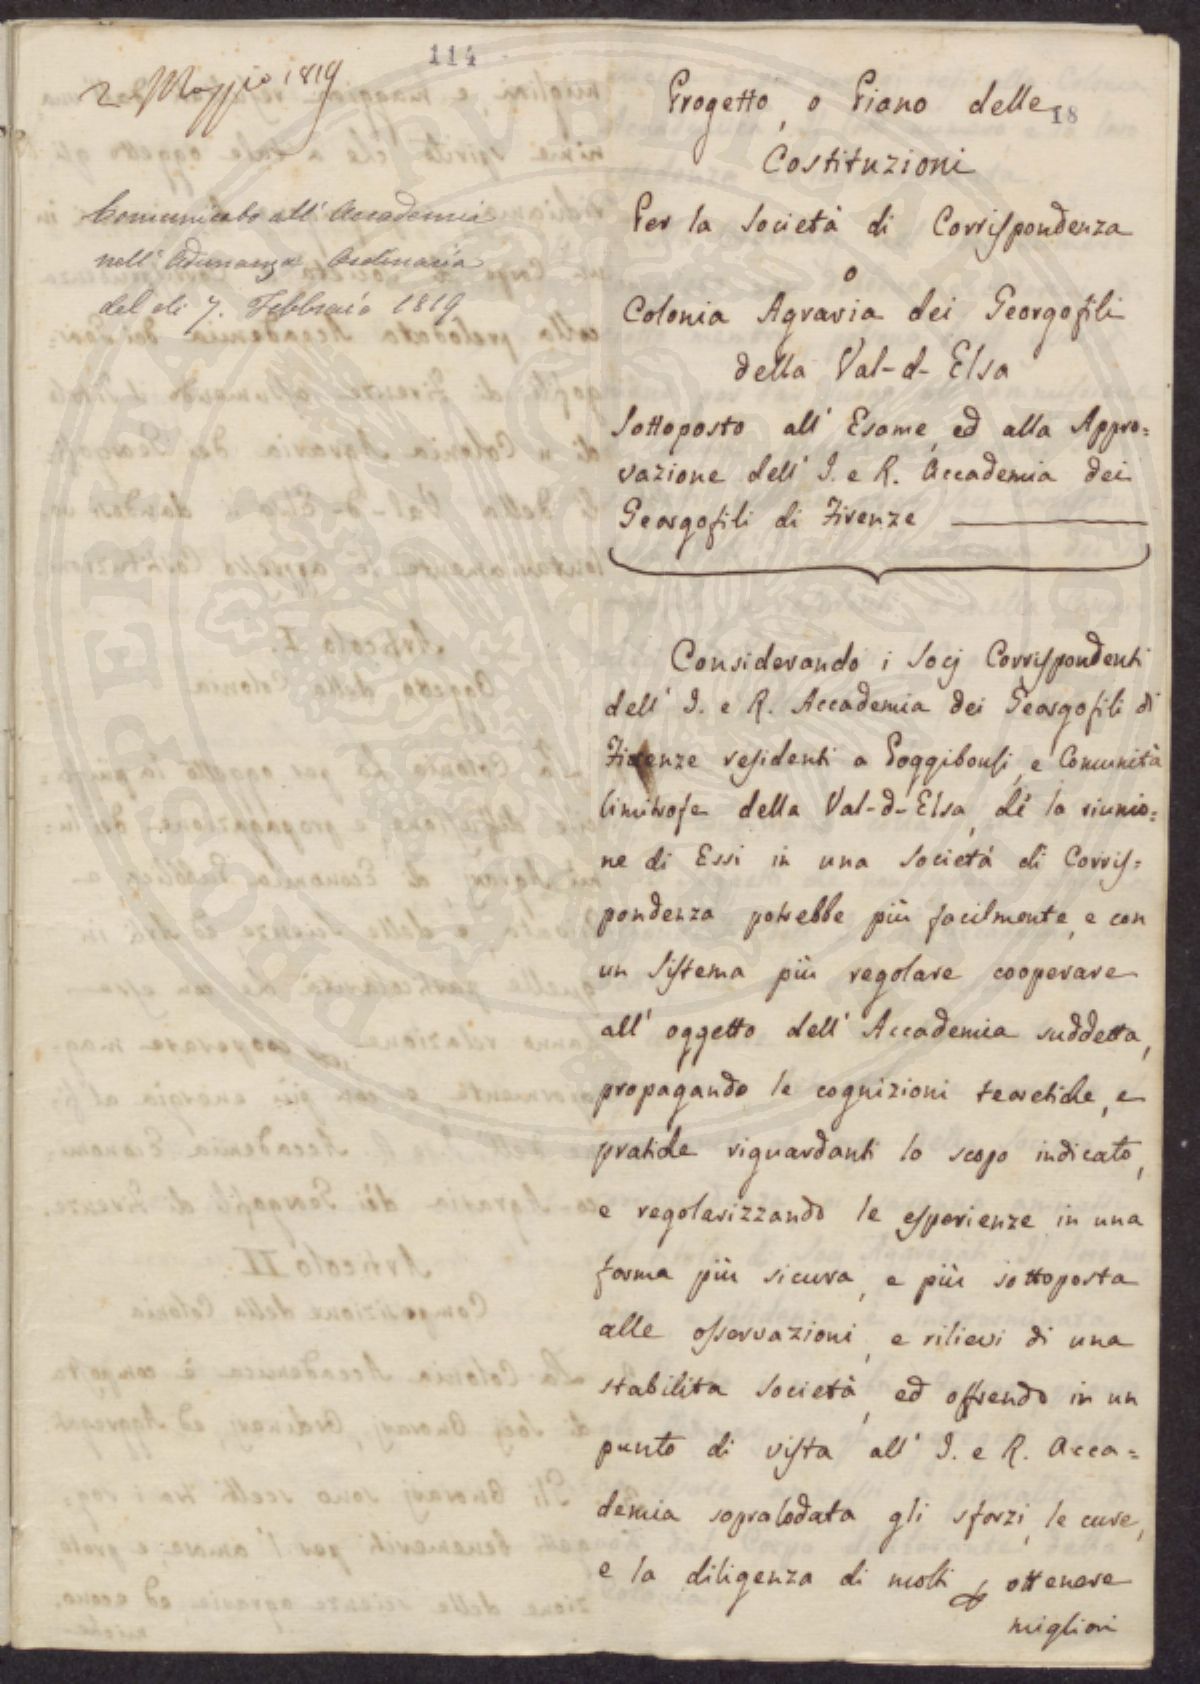 114
2 Maggio 1819
Comunicato all' Accademia
nell' Adunanza Ordinaria
del dì 7. Febbraio 1819
18
Progetto, o Piano delle
Costituzioni
Per la Società di Corrispondenza
o
Colonia Agraria dei Georgofili
della Val-d-Elsa
Sottoposto all' Esame, ed alla Appro=
vazione dell' I. e R. Accademia dei
Georgofili di Firenze
Considerando i Socj Corrispondenti
dell' I. e R. Accademia dei Georgofili di
Firenze residenti a Poggibonsi, e Comunità
limitrofe della Val-d-Elsa, che la riunio=
ne di Essi in una Società di Corris=
pondenza potrebbe più facilmente, e con
un Sistema più regolare cooperare
all' oggetto dell' Accademia suddetta,
propagando le cognizioni teoretiche, e
pratiche riguardanti lo scopo indicato,
e regolarizzando le esperienze in una
forma più sicura, e più sottoposta
alle osservazioni, e rilievi di una
stabilita Società, ed offrendo in un
punto di vista all' I. e R. Acca=
demia sopralodata gli sforzi, le cure,
e la diligenza di molti ottenere
migliori